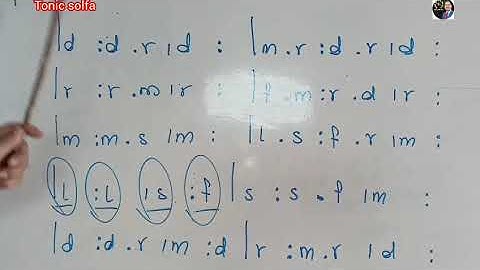 Tonic solfa
|d :d .r |d : |m .r :d .r |d :
|r :r .m |r : |f .m :r .d |r :
|m :m .s |m : |l .s :f .r |m :
|l :l |s :f |s :s .f |m :
|d :d .r |m :d |r :m .r |d :